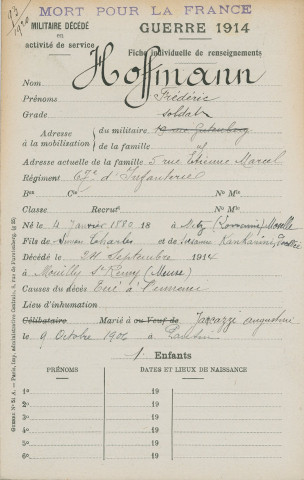 93
MORT POUR LA FRANCE
MILITAIRE DÉCÉDÉ
en
activité de service
GUERRE 1914
Fiche individuelle de renseignements
Nom Hoffmann
Prénoms Frédéric
Grade soldat
Adresse à la mobilisation du militaire 19 rue Gutenberg
de la famille
Adresse actuelle de la famille 5 rue Etienne Marcel
Régiment 67e d'Infanterie
Bon Cie No Mle
Classe Recrut No Mle
Né le 4 Janvier 1880 18 à Metz (Lorraine) Moselle
Fils de Simon Charles et de Susanne
Décédé le 24 Septembre 1914
à Mouilly St Rémy (Meuse)
Causes du décès Tué à l'ennemi
Lieu d'inhumation
Célibataire Marié à ou Veuf de Jaccazzi Augustine
le 9 Octobre 1906 à Pantin
1 Enfants
PRÉNOMS DATES ET LIEUX DE NAISSANCE
1o 19
2o 19
3o 19
4o 19
5o 19
6o 19